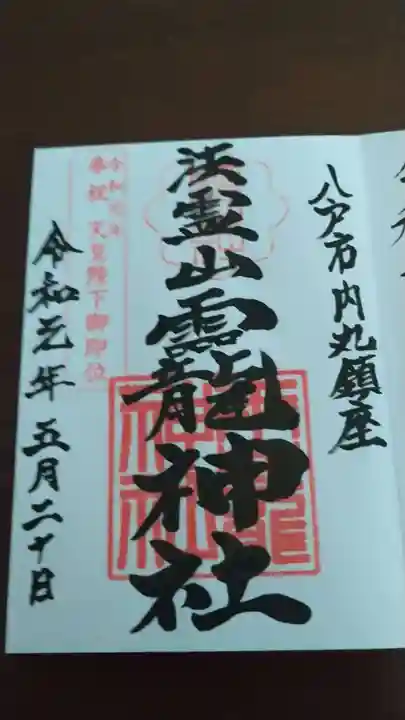 八戸市内丸鎮座
法霊山龗神社
奉祝 天皇陛下御即位
令和元年五月二十日